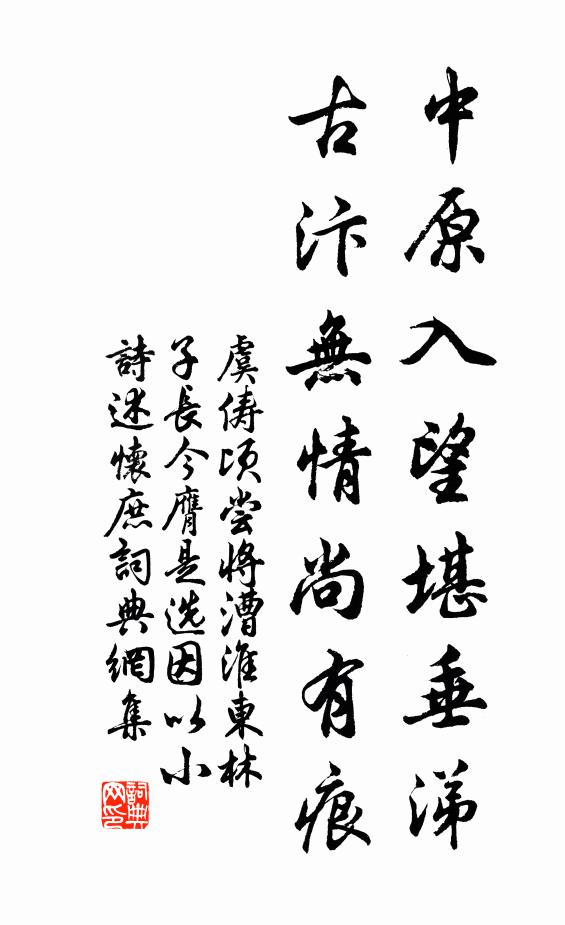 中原入望堪垂涕
古汴無情尚有痕
虞儔頃嘗將漕淮東林
子長今膺是选因以小
詩述懷庶詞典網集
詞典
网印